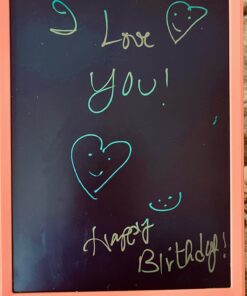 I Love
YOU!
Happy
Birthday!